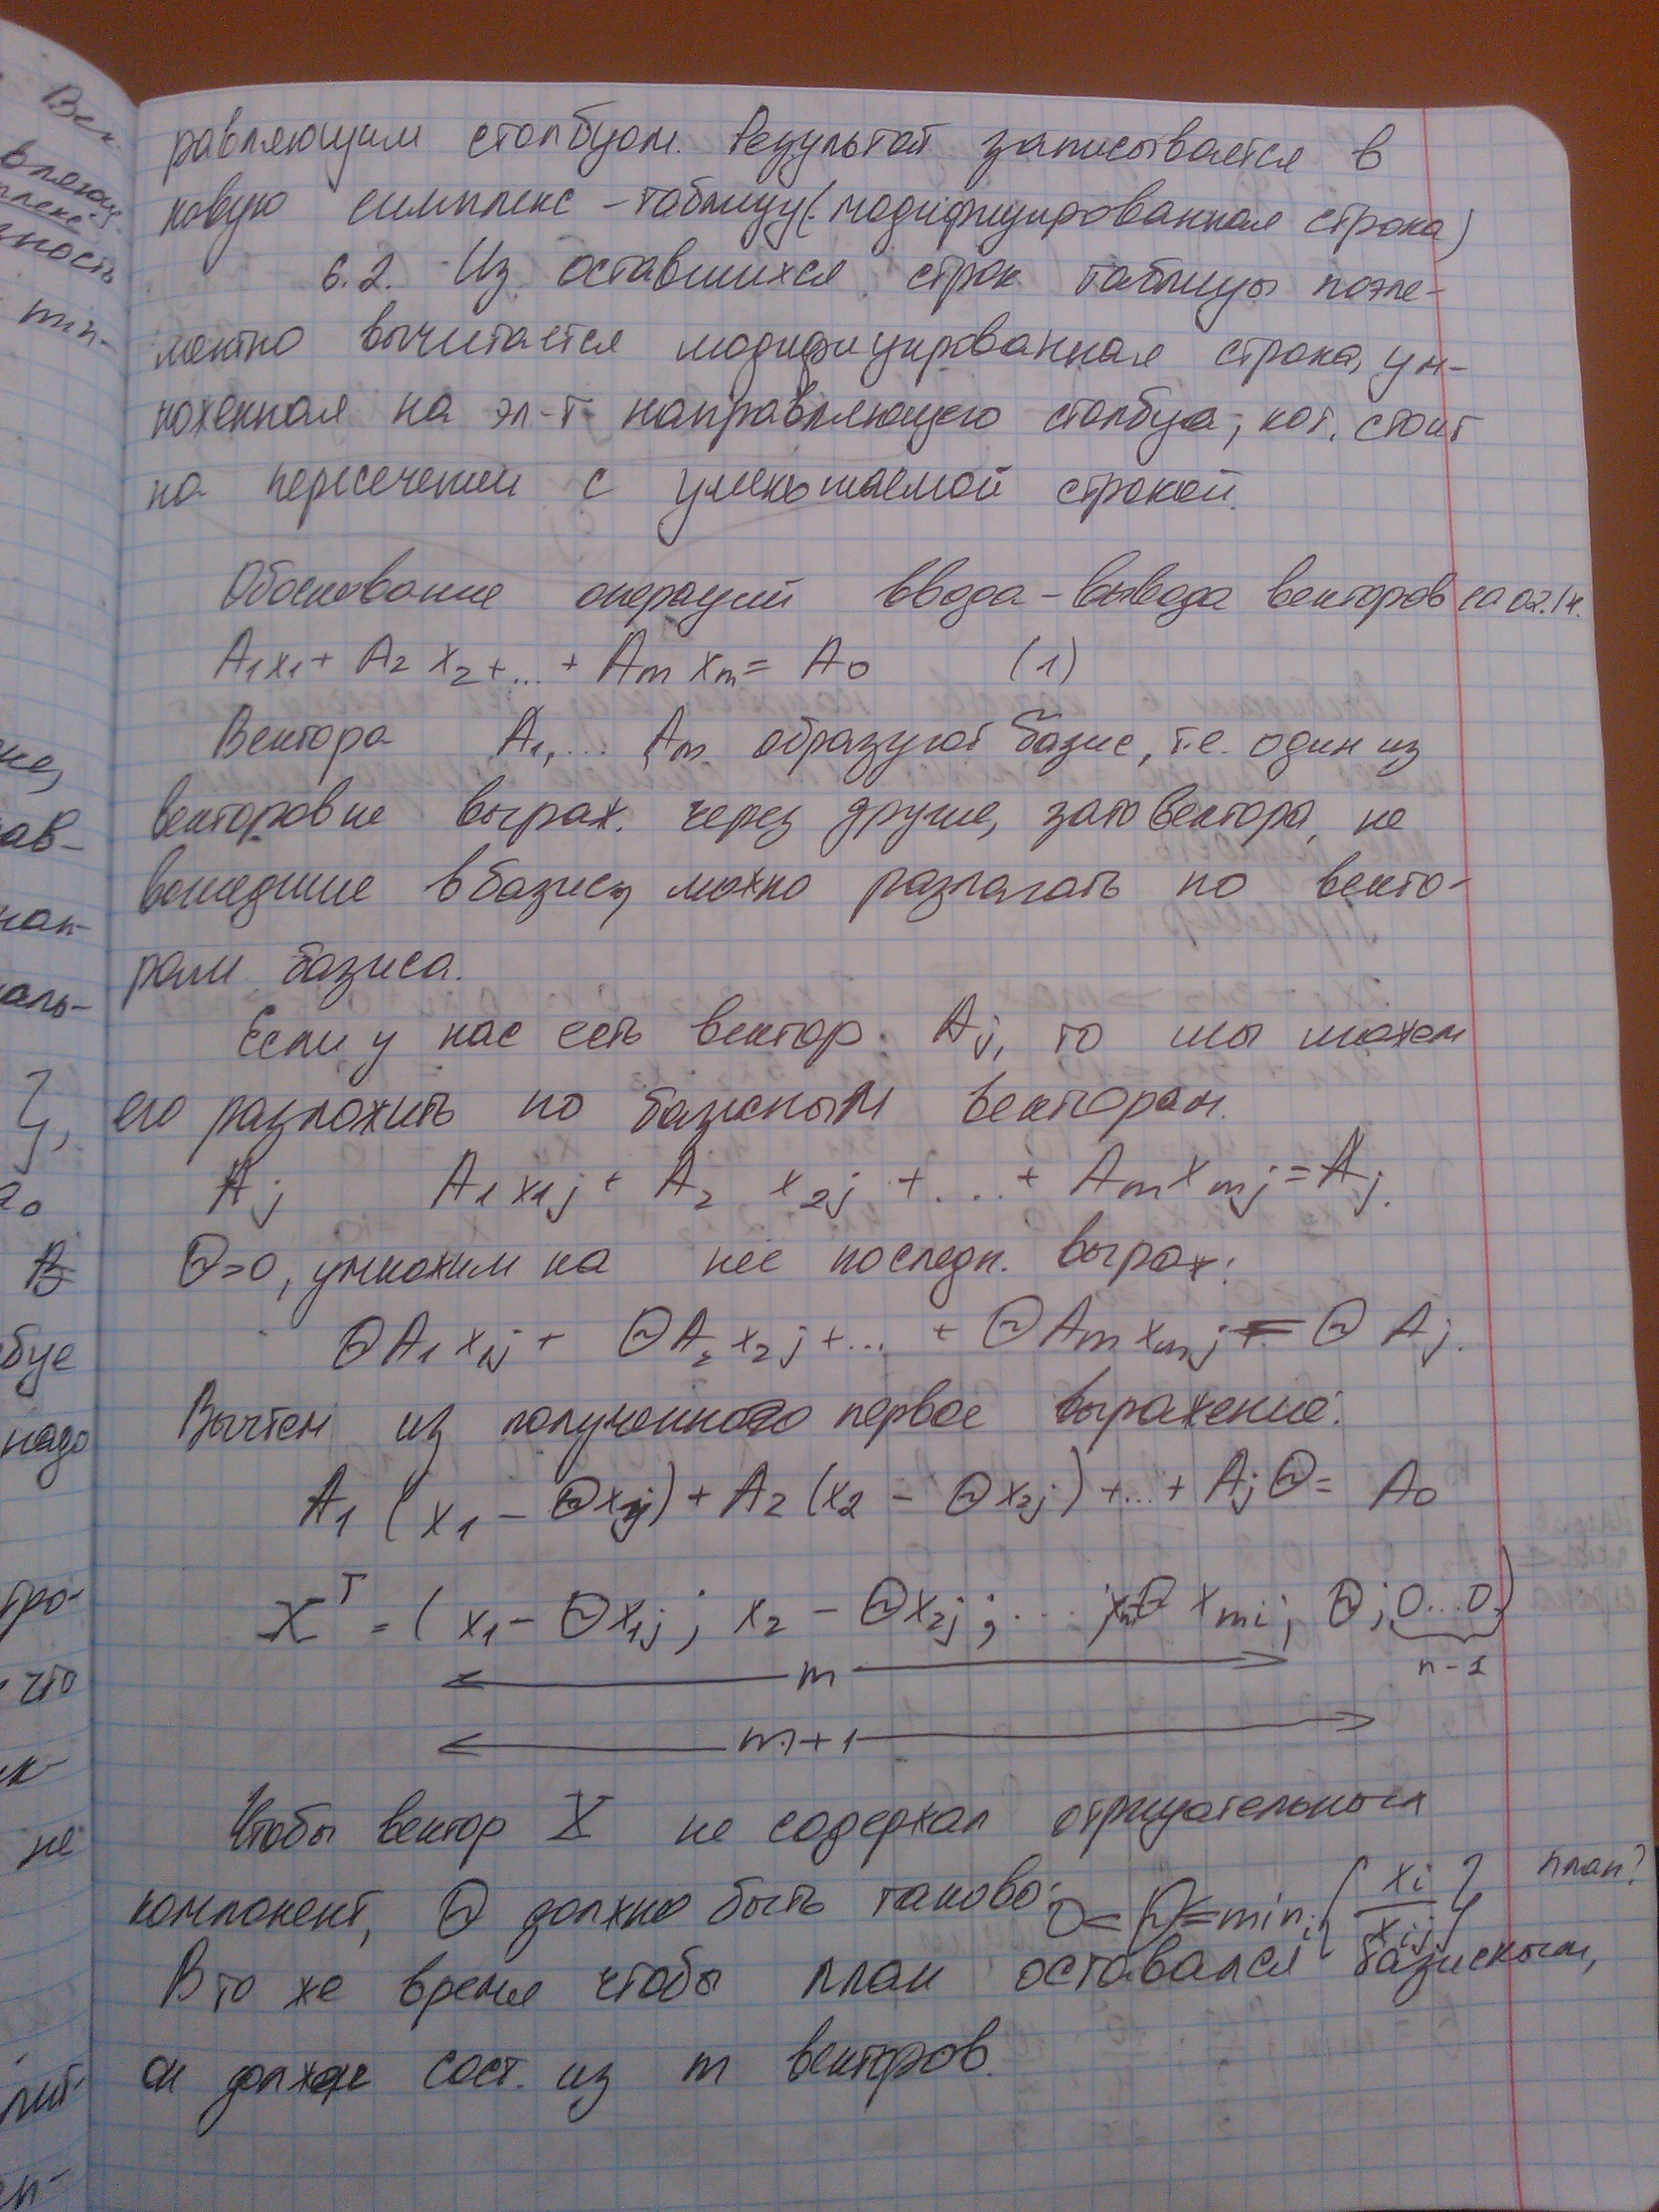 Век.
вляющ.
плекс
зность
min-
равляющим столбцом. Результат записывается в
новую симплекс-таблицу (модифицированная строка)
6.2. Из оставшихся строк таблицы поэле-
ментно вычитается модифицированная строка, ум-
ноженная на эл-т направляющего столбца, кот. стоит
на пересечении с уменьшаемой строкой.
Обоснование операций ввода-вывода векторов 10.02.14.
A₁x₁ + A₂x₂ + ... + Aₘxₘ = A₀ (1)
Вектора A₁, ... Aₘ образуют базис, т.е. один из
векторов не выраж. через другие, зато вектора, не
вошедшие в базис, можно разлагать по векто-
рам базиса.
Если у нас есть вектор Aⱼ, то мы можем
его разложить по базисным векторам.
Aⱼ A₁x₁ⱼ + A₂x₂ⱼ + ... + Aₘxₘⱼ = Aⱼ.
Θ>0, умножим на неё последн. выраж:
ΘA₁x₁ⱼ + ΘA₂x₂ⱼ + ... + ΘAₘxₘⱼ = ΘAⱼ.
Вычтем из полученного первое выражение:
A₁(x₁ - Θx₁ⱼ) + A₂(x₂ - Θx₂ⱼ) + ... + AⱼΘ = A₀
Xᵀ = (x₁ - Θx₁ⱼ; x₂ - Θx₂ⱼ; ... ; xₘΘ xₘᵢ; Θ; 0...0)
m n-1
m+1
Чтобы вектор X не содержал отрицательных
компонент, Θ должно быть таково: 0 = Θ = min {xᵢ/xᵢⱼ} план?
В то же время чтобы план оставался базисным,
он должен сост. из m векторов.
ав-
нап-
аль-
a₀
буе
надо
тро-
что
не